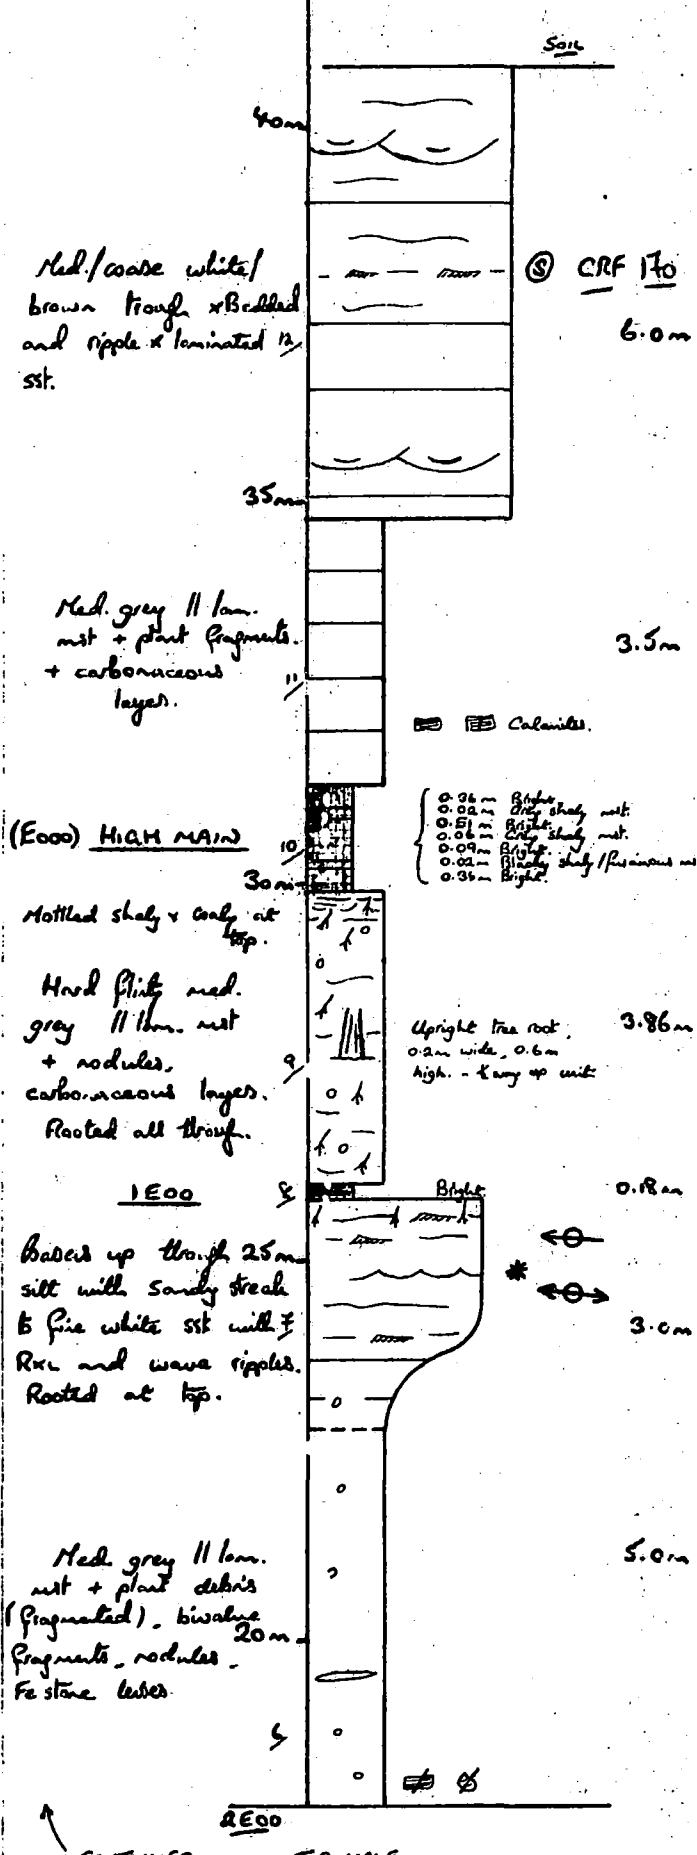 Soil
40m
Med./coarse white/
brown trough xBedded
and ripple x laminated
sst.
12
Ⓢ CRF 170
6.0m
35m
Med. grey // lam.
mst + plant fragments.
+ carbonaceous
layers.
11
3.5m
Calamites.
(E000) HIGH MAIN
10
30m
0.36m Bright
0.02m Grey shaly mst.
0.51m Bright.
0.06m Grey shaly mst.
0.09m Bright.
0.02m shaly/
0.36m Bright.
Mottled shaly & coaly at
top.
Hard flinty med.
grey // lam. mst
+ nodules,
carbonaceous layers.
Rooted all through.
9
Upright tree root,
0.2m wide, 0.6m
high. - ½ way up unit
3.86m
1E00
8
Bright.
0.18m
up through
silt with sandy streak
to fine white sst with
RxL and wave ripples.
Rooted at top.
25m
7
*
3.0m
Med. grey // lam.
mst + plant debris
(fragmented), bivalve
fragments, nodules,
Fe stone lenses
20m
5.0m
6
2E00